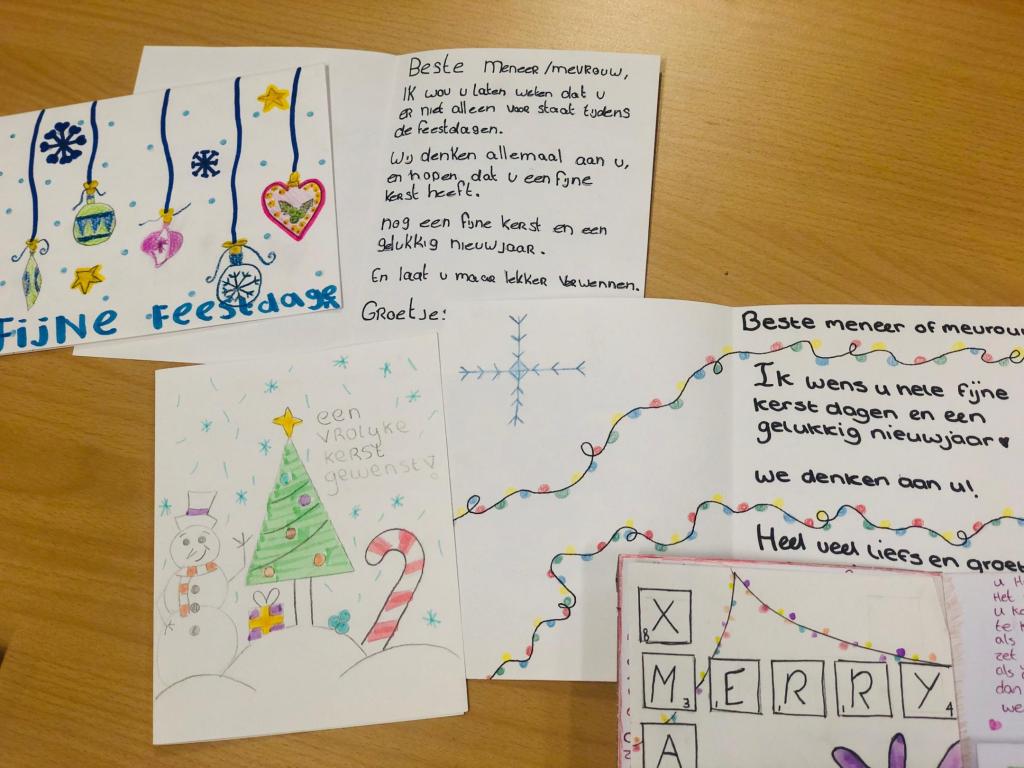 Beste meneer/mevrouw,
Ik wou u laten weten dat u
er niet alleen voor staat tijdens
de feestdagen.
Wij denken allemaal aan u,
en hopen, dat u een fijne
kerst heeft.
nog een fijne kerst en een
gelukkig nieuwjaar.
En laat u maar lekker verwennen.
Groetje:
Fijne Feestdage
een
vrolijke
kerst
gewenst!
Beste meneer of mevrouw
Ik wens u hele fijne
kerst dagen en een
gelukkig nieuwjaar
we denken aan u!
Heel veel liefs en groet
X 8
M 3 E 1 R 1 R 1 Y 4
A
u
Het
u
te
als
zet
als
dan
we